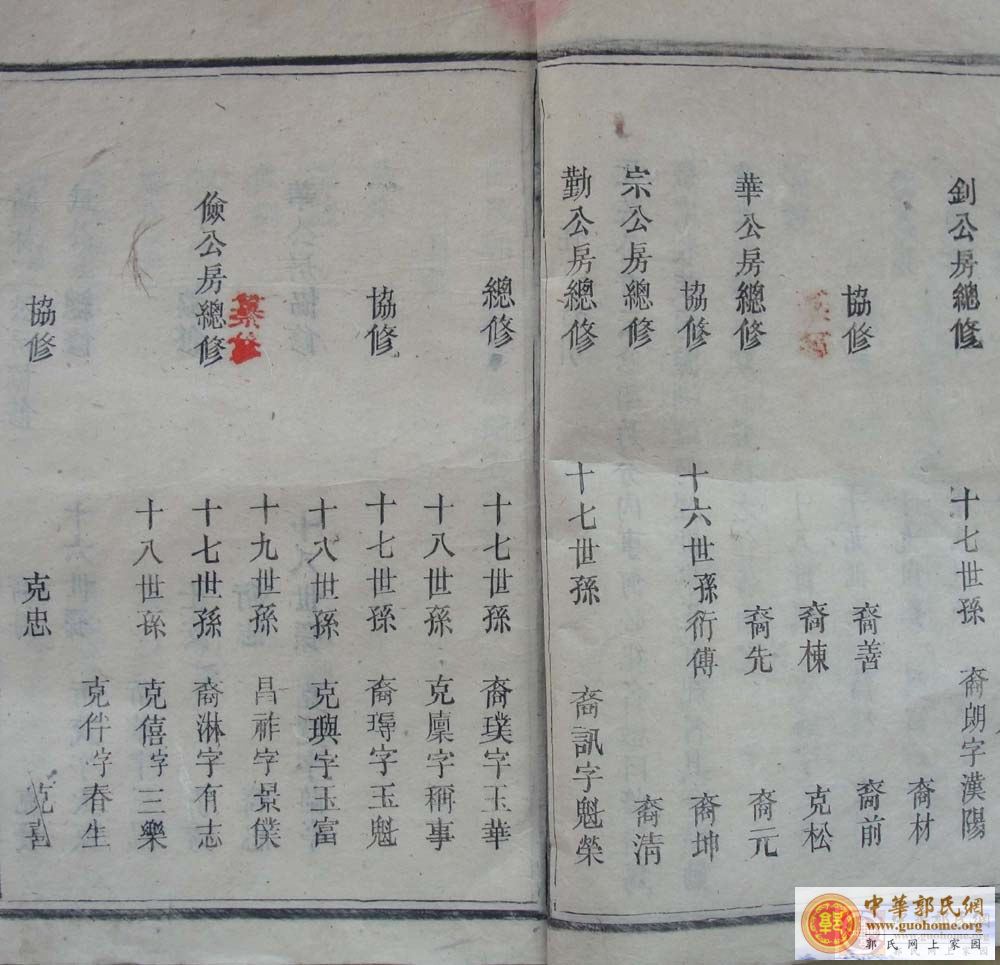 釗公房總修 十七世孫 裔朗字漢陽
裔材
協修 裔善 裔前
裔棟 克松
華公房總修 裔先 裔元
協修 十六世孫衍傳 裔坤
宗公房總修 裔清
勤公房總修 十七世孫 裔訊字魁榮
總修 十七世孫 裔璞字玉華
十八世孫 克廩字稱事
協修 十七世孫 裔璕字玉魁
十八世孫 克璵字玉富
纂修 十九世孫 昌祚字景僕
儉公房總修 十七世孫 裔淋字有志
十八世孫 克僖字三樂
克伴字春生
協修 克忠 克喜
中華郭氏網
www.guohome.org
郭氏網上家園